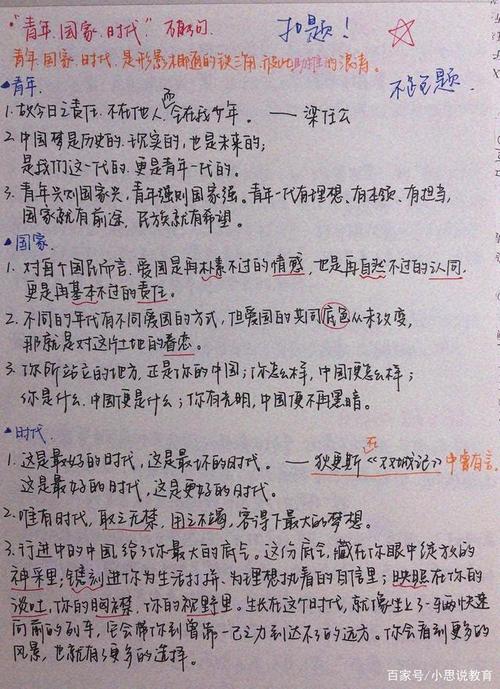 "青年、国家、时代"
扣题！
青年、国家、时代，是形影相随的铁三角，彼此助推的浪者。
不能色题
青年.
1. 故今日之责任，不在他人，全在我少年。——梁任公
而
2. 中国梦是历史的、现实的，也是未来的；
是我们这一代的，更是青年一代的。
3. 青年兴则国家兴，青年强则国家强。青年一代有理想、有本领、有担当，
国家就有前途，民族就有希望。
国家.
1. 对每个国民而言，爱国是再朴素不过的情感，也是再自然不过的认同，
更是再基本不过的责任。
2. 不同的年代有不同爱国的方式，但爱国的共同底色从未改变，
那就是对这片土地的眷恋。
3. 你所站立的地方，正是你的中国；你怎么样，中国便怎么样；
你是什么，中国便是什么；你有光明，中国便不再黑暗。
时代.
1. 这是最好的时代，这是最坏的时代。——狄更斯《双城记》中曾有言.
这是最好的时代，这是更好的时代。
2. 唯有时代，取之无禁，用之不竭，容得下最大的梦想。
3. 行进中的中国，给了你最大的底气。这份底气，藏在你眼中绽放的
神采里；镌刻进你为生活打拼、为理想执着的自信里；映照在你的
谈吐、你的胸襟、你的视野里。生长在这个时代，就像坐上了一车两快速
向前的列车，它会带你到曾靠一己之力到达不了的远方。你会看到更多的
风景，也就有了更多的选择。
百家号/小思说教育